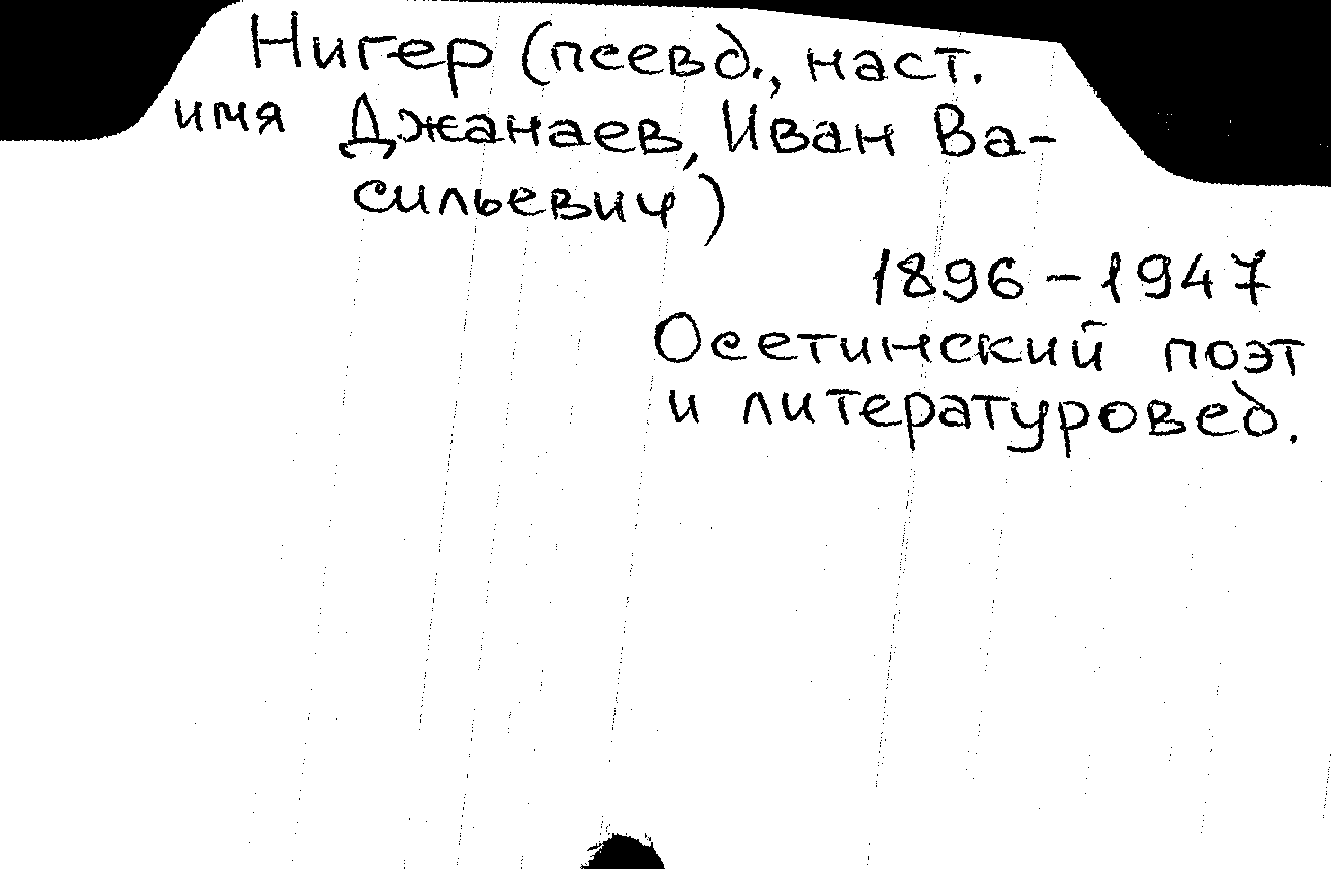 Нигер (псевд., наст.
имя Джанаев, Иван Ва-
сильевич)
1896-1947
Осетинский поэт
и литературовед.